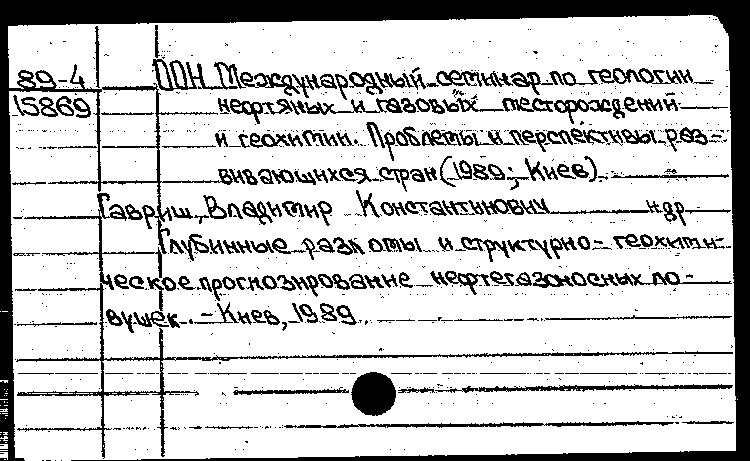 89-4 ООН Международный семинар по геологии
15869 нефтяных и газовых месторождений
и геохимии. Проблемы и перспективы раз-
вивающихся стран (1989; Киев)
Гавриш, Владимир Константинович и др
Глубинные разломы и структурно-геохими-
ческое прогнозирование нефтегазоносных ло-
вушек. - Киев, 1989.